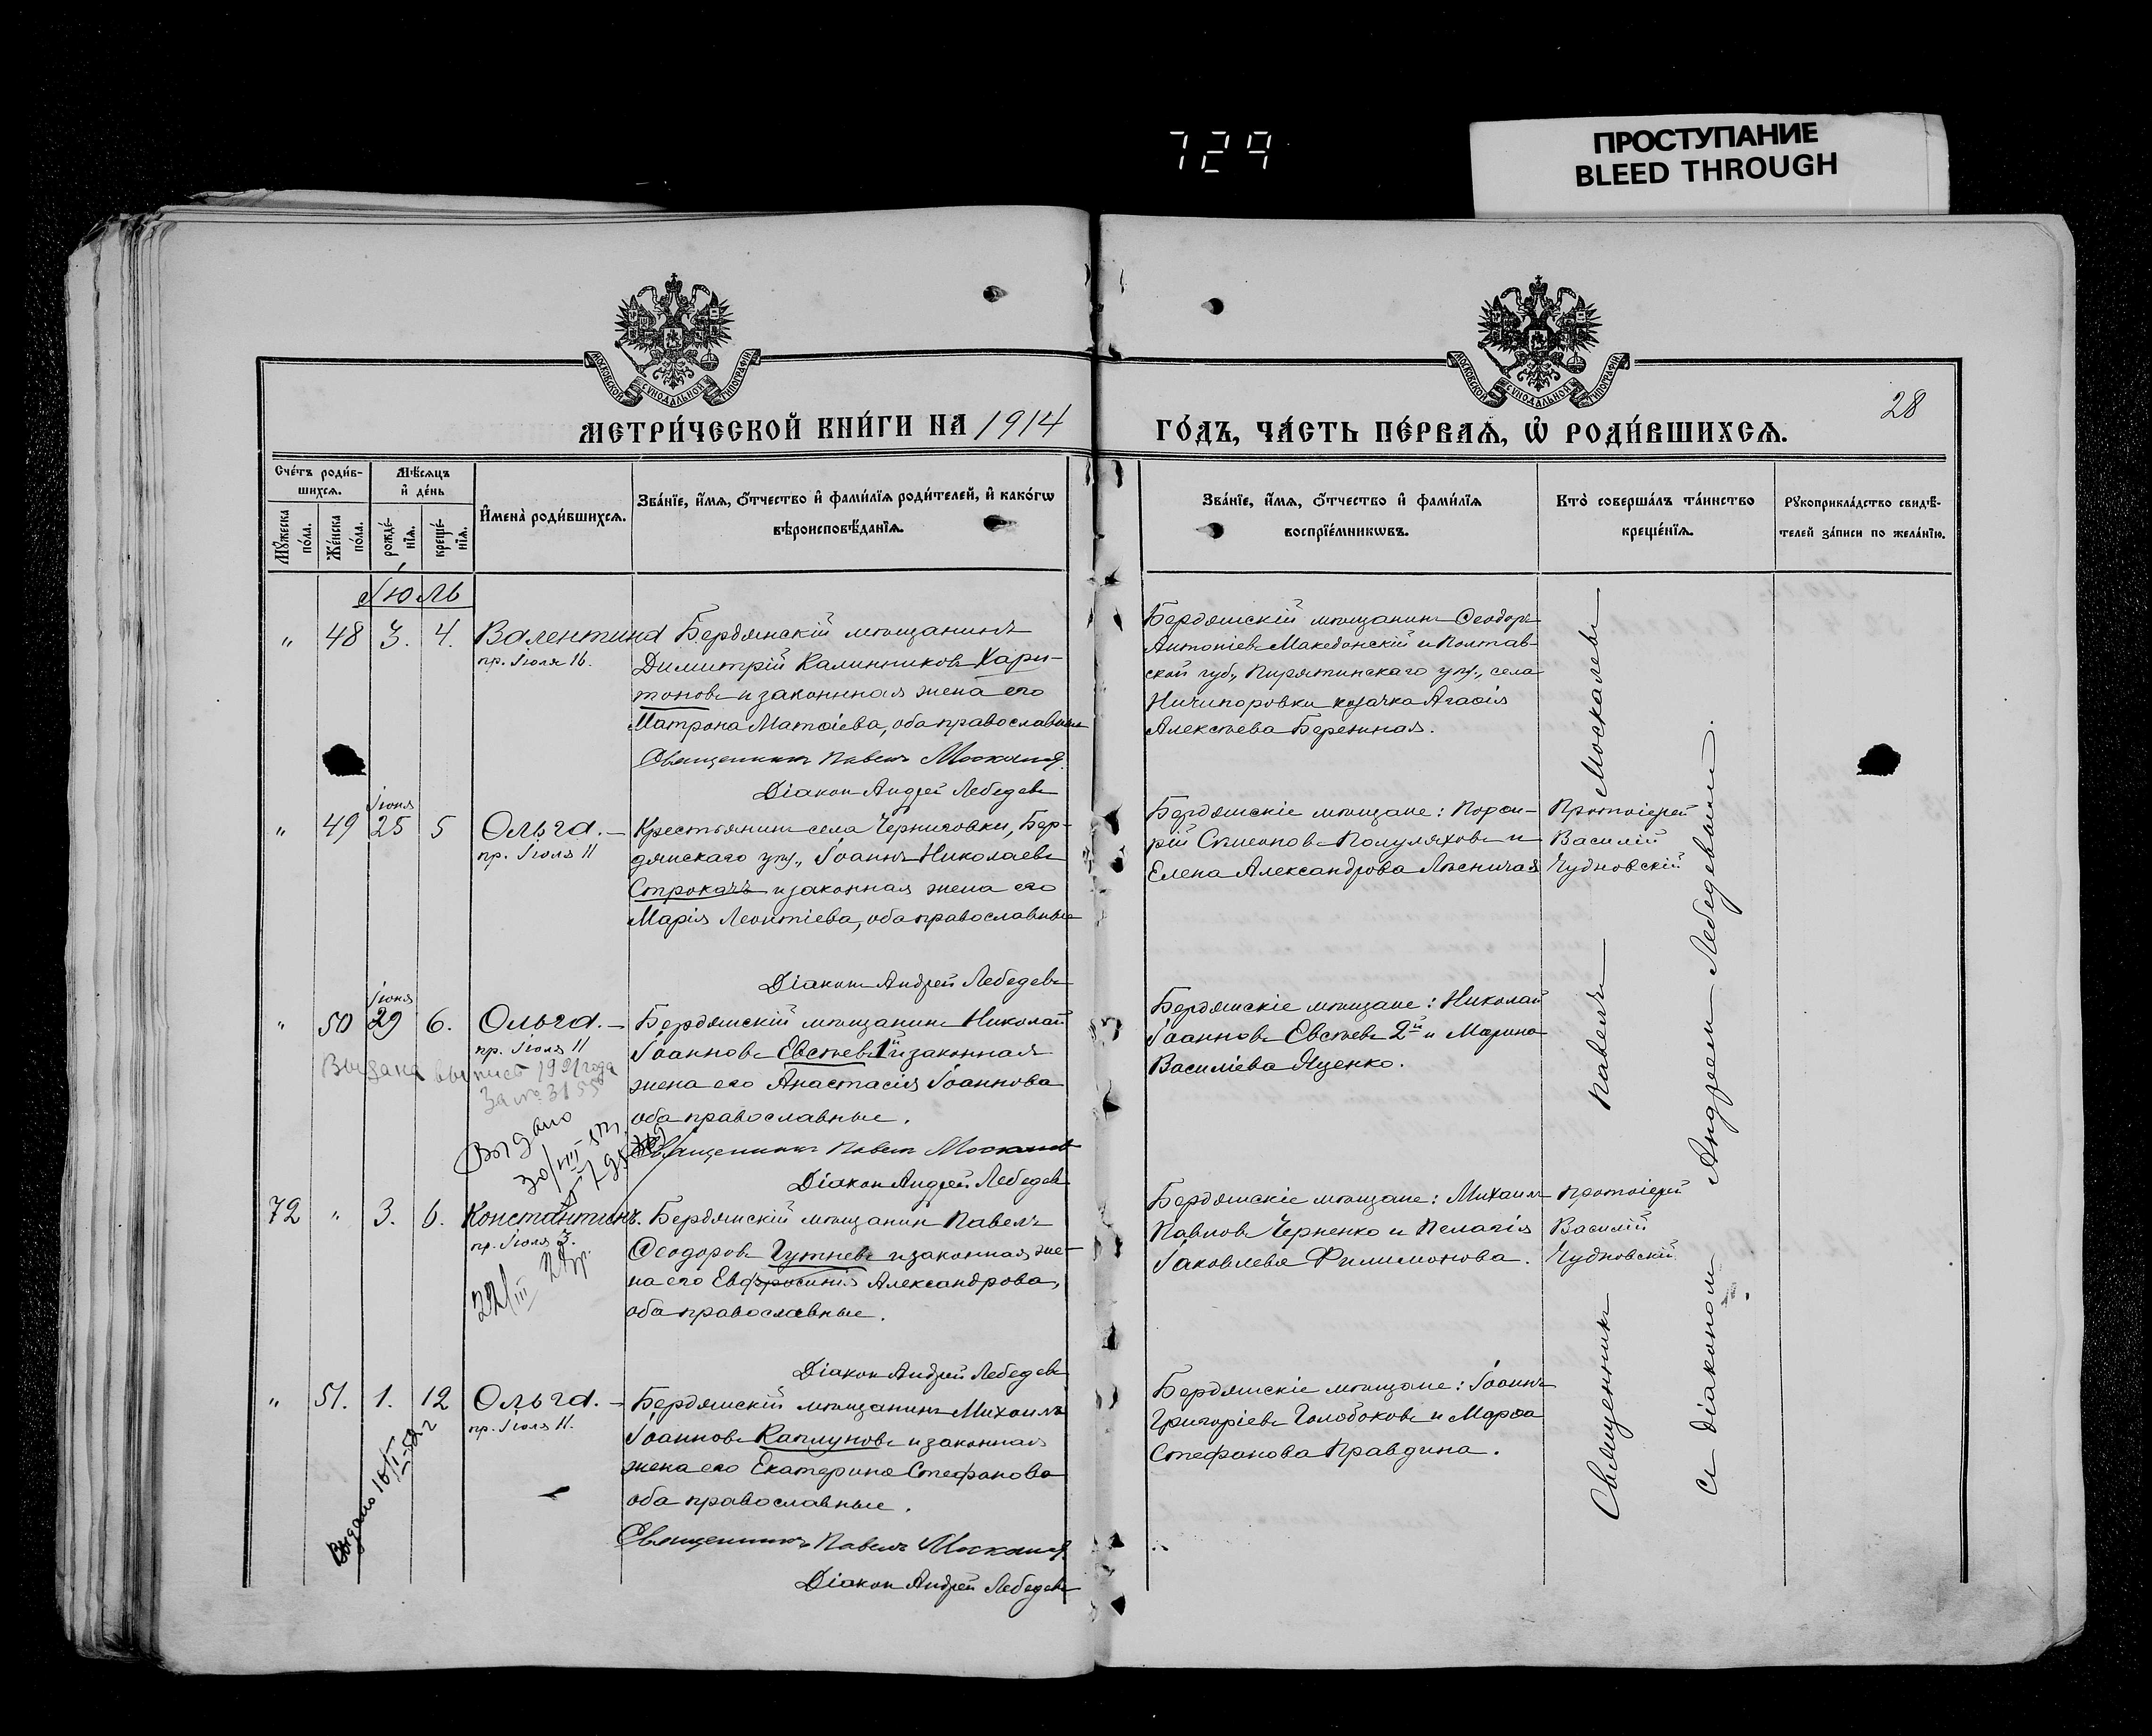 729
ПРОСТУПАНИЕ
BLEED THROUGH
МОСКОВСКОЙ СУНОДАЛЬНОЙ ТИПОГРАФІИ
МОСКОВСКОЙ СУНОДАЛЬНОЙ ТИПОГРАФІИ
28
МЕТРИ́ЧЕСКОЙ КНИ́ГИ НА 1914
ГО́ДЪ, ЧА́СТЬ ПЕ́РВАѦ, Ѽ РОДИ́ВШИХСѦ.
Сче́тъ роди́в-
шихсѧ.
Мѣ́сѧцъ
и҆ де́нь
Мꙋ́жеска по́ла.
Же́нска по́ла.
рожде́-
нїѧ.
креще́-
нїѧ.
И҆мена̀ роди́вшихсѧ.
Зва́нїе, и҆́мѧ, ѻ҆́тчество и҆ фами́лїѧ роди́телей, и҆ како́гѡ
вѣроисповѣ́данїѧ.
Зва́нїе, и҆́мѧ, ѻ҆́тчество и҆ фами́лїѧ
воспрїе́мникѡвъ.
Кто̀ соверша́лъ та́инство
креще́нїѧ.
Рꙋкоприкла́дство свидѣ́-
телей за́писи по жела́нїю.
Іюль
" 48 3. 4. Валентина
пр. Іюля 16.
Бердянскій мѣщанинъ
Димитрій Калинниковъ Хари-
тоновъ и законная жена его
Матрона Матѳіева, оба православные
Священникъ Павелъ Москалевъ
Діаконъ Андрей Лебедевъ
Бердянскій мѣщанинъ Ѳеодоръ
Антоніевъ Македонскій и Полтав-
ской губ., Пирятинскаго уѣз., села
Ничипоровки козачка Агаѳія
Алексѣева Бережная.
" 49 Іюня 25 5 Ольга.
пр. Іюля 11
Крестьянинъ села Черниговки, Бер-
дянскаго уѣз., Іоаннъ Николаевъ
Строкачъ и законная жена его
Марія Леонтіева, оба православные
Діаконъ Андрей Лебедевъ
Бердянскіе мѣщане: Порфи-
рій Симеоновъ Полуляховъ и
Елена Александрова Лѣсничая
Протоіерей
Василій
Чудновскій
" 50 Іюня 29 6. Ольга.
пр. Іюля 11
Выдана выпись 1921 года
За № 3155
Выдано
30/VIII
Бердянскій мѣщанинъ Николай
Іоанновъ Евсѣевъ 1й и законная
жена его Анастасія Іоаннова
оба православные.
Священникъ Павелъ Москалевъ
Діаконъ Андрей Лебедевъ
Бердянскіе мѣщане: Николай
Іоанновъ Евсѣевъ 2й и Марина
Василіева Яценко.
72 " 3. 6. Константинъ.
пр. Іюля 3.
22/III
Бердянскій мѣщанинъ Павелъ
Ѳеодоровъ Гутневъ и законная же-
на его Евфросинія Александрова,
оба православные.
Діаконъ Андрей Лебедевъ
Бердянскіе мѣщане: Михаилъ
Павловъ Черненко и Пелагія
Іаковлева Филимонова.
Протоіерей
Василій
Чудновскій
" 51. 1. 12 Ольга.
пр. Іюля 11.
Выдано 16/I
Бердянскій мѣщанинъ Михаилъ
Іоанновъ Каплуновъ и законная
жена его Екатерина Стефанова
оба православные.
Священникъ Павелъ Москалевъ
Діаконъ Андрей Лебедевъ
Бердянскіе мѣщане: Іоаннъ
Григоріевъ Голобоковъ и Марѳа
Стефанова Правдина.
Священникъ Павелъ Москалевъ
съ діакономъ Андреемъ Лебедевымъ.